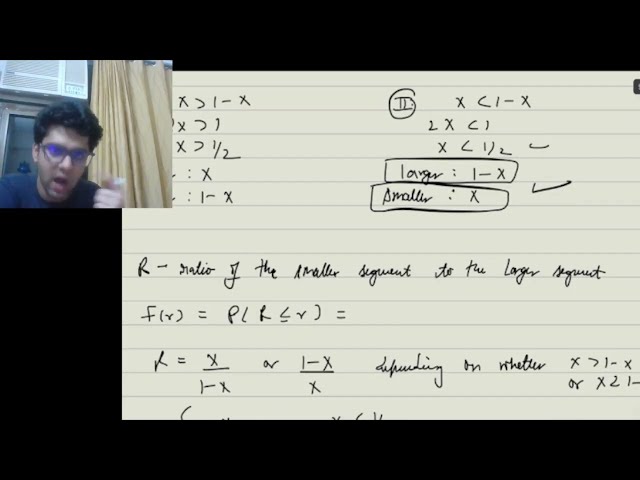 x > 1 - x
x > 1
x > 1/2
: x
: 1 - x
II: x < 1 - x
2x < 1
x < 1/2
larger : 1 - x
smaller : x
R - ratio of the smaller segment to the larger segment
F(r) = P( R ≤ r ) =
R = x/1-x or 1-x/x depending on whether x > 1 - x
or x ≥ 1 -